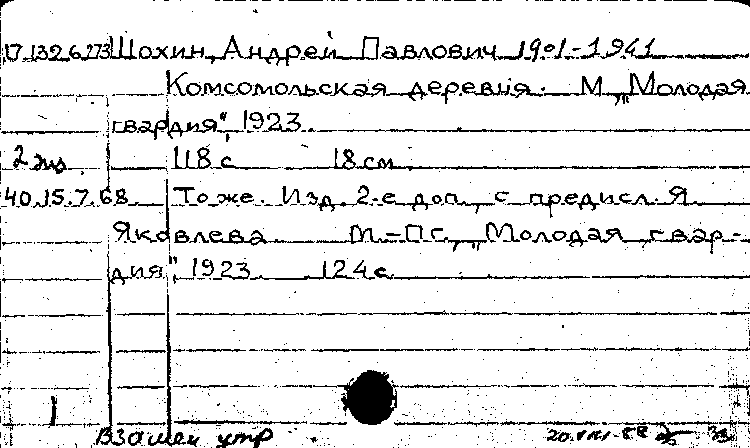 17.132.6.173 Шохин, Андрей Павлович 1901-1941
Комсомольская деревня. М., „Молодая
гвардия", 1923.
2 экз. 118 с. 18 см.
40.15.7.68 То же. Изд. 2-е доп., с предисл. Я.
Яковлева М.-Пг., „Молодая гвар-
дия", 1923. 124 с.
Взамен утр 20.VIII-58